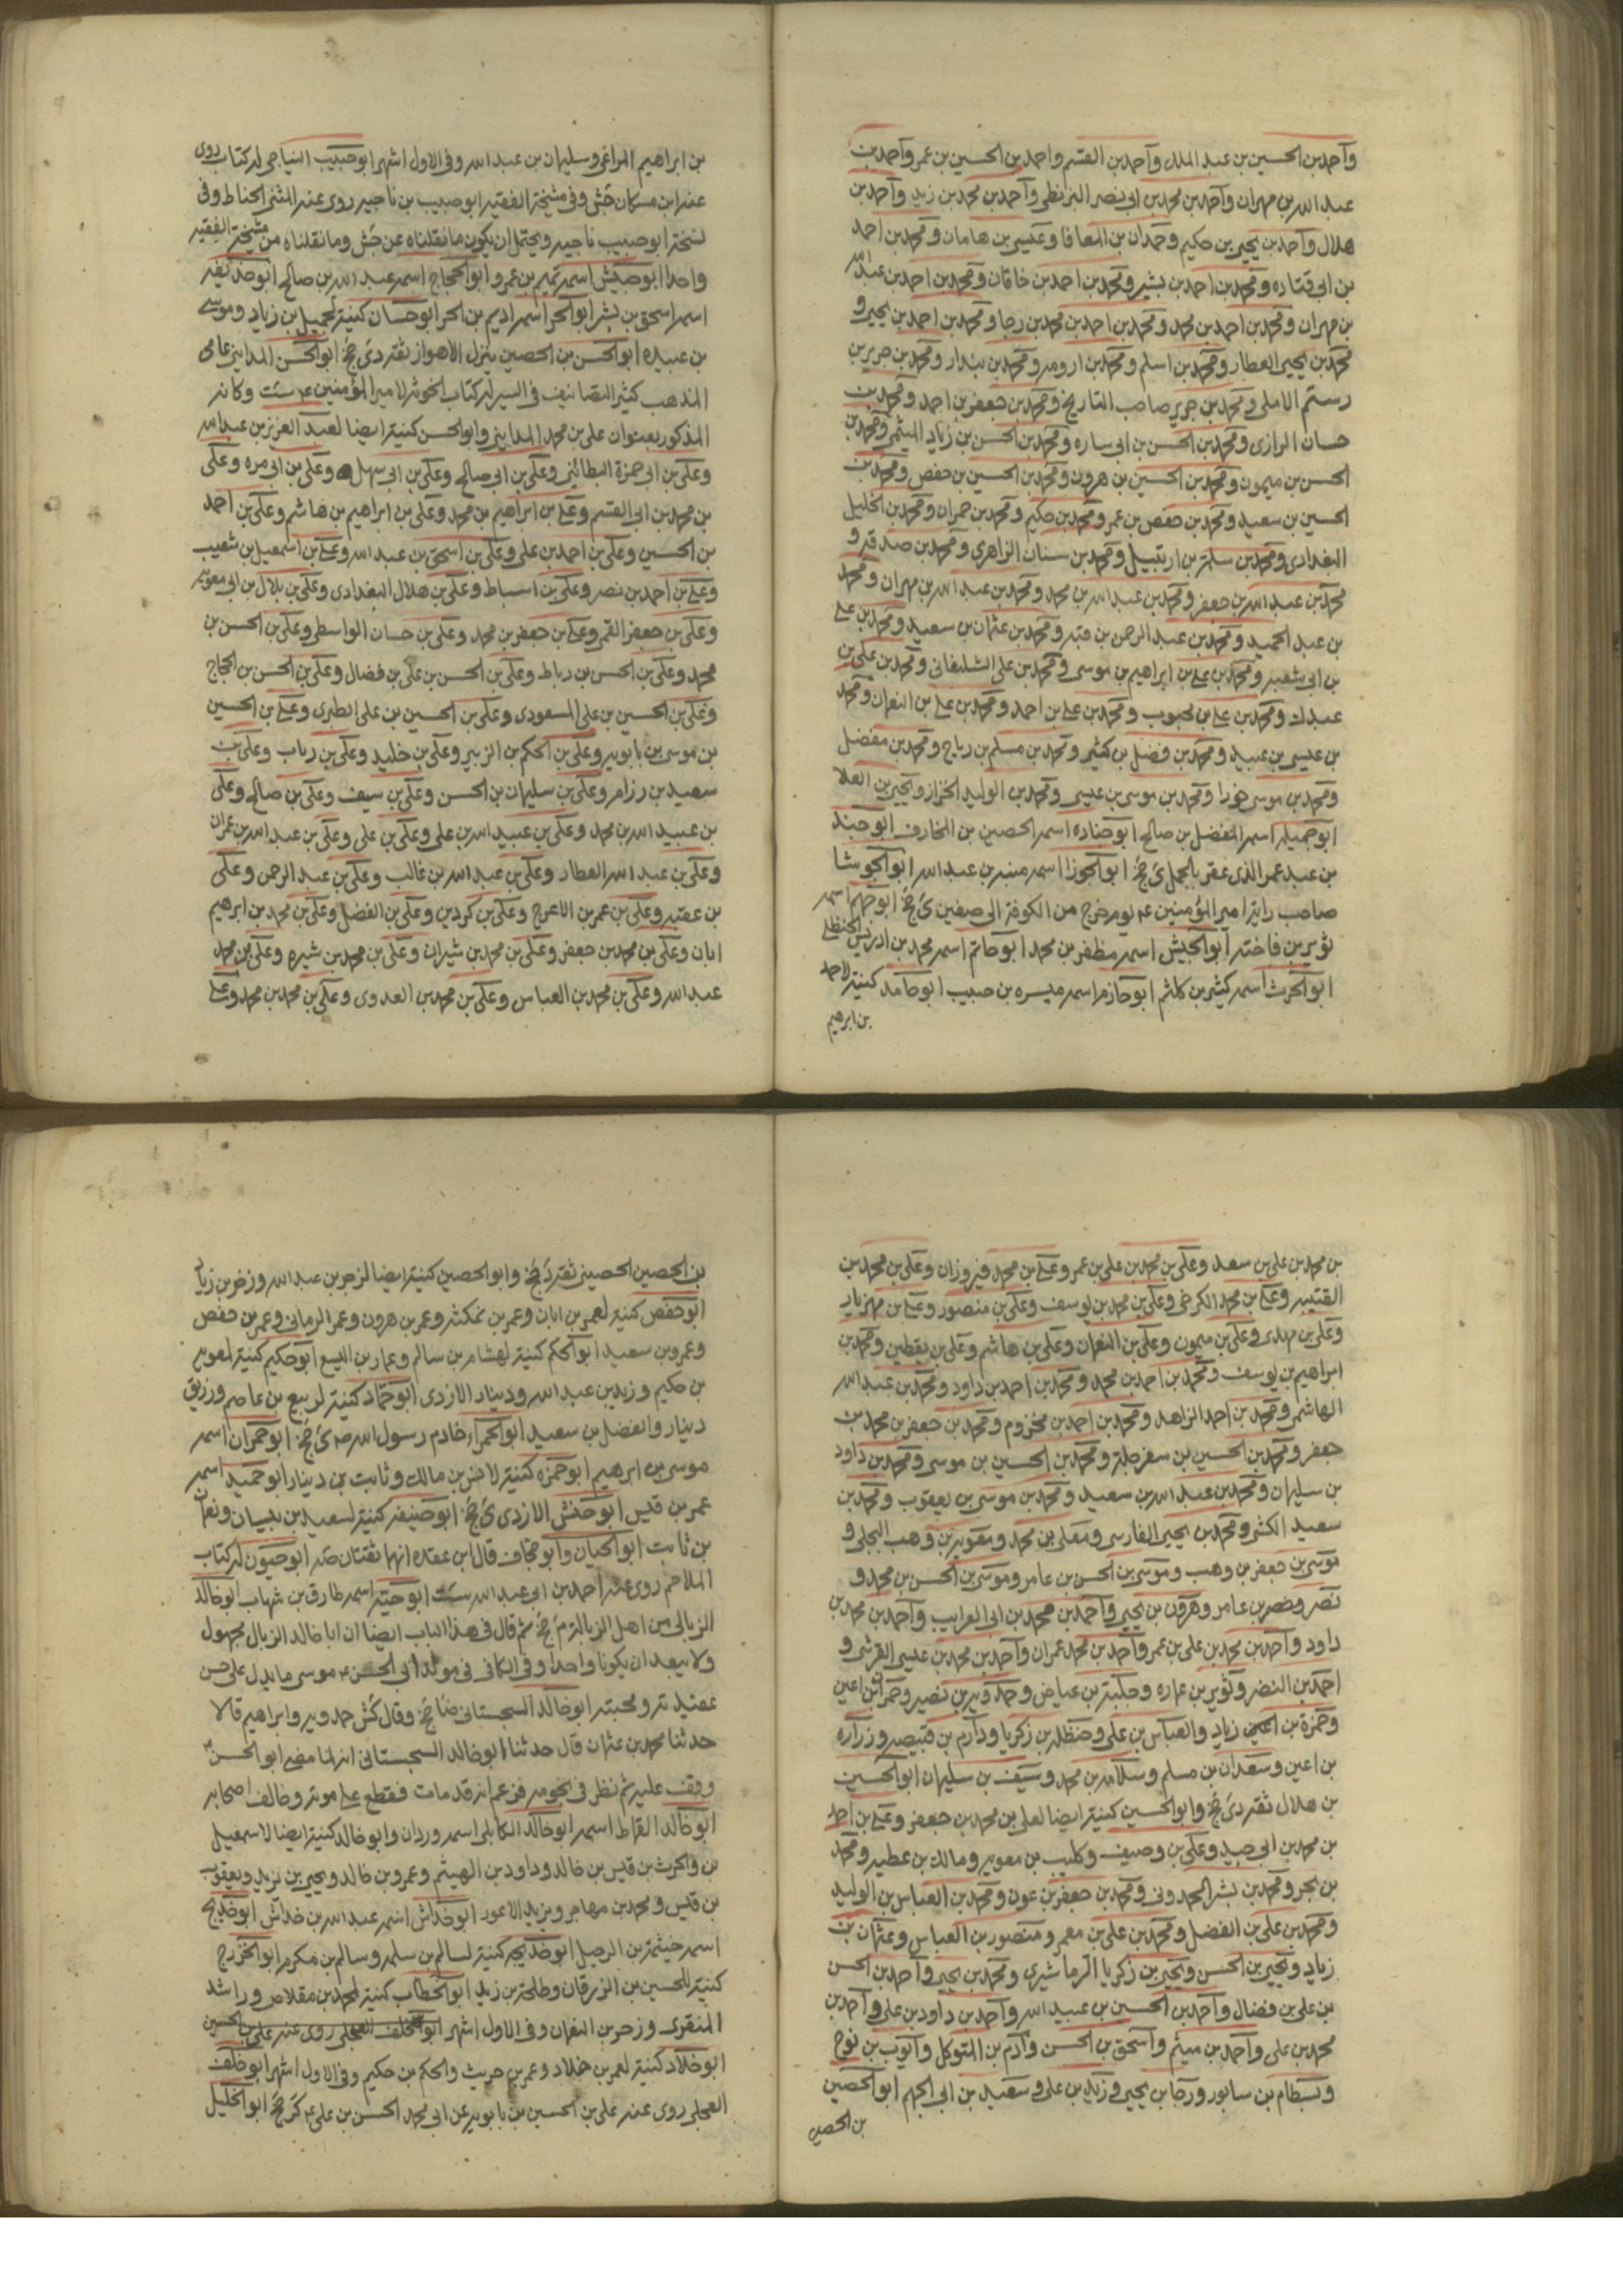 وآحمد بن الحسين بن عبد الملك وآحمد بن القسم واحمد بن الحسين بن عمر وآحمد بن
عبد الله بن مهران وآحمد بن محمد بن ابى نصر البزنطى وآحمد بن محمد بن زيد وآحمد بن
هلال وآحمد بن يحيى بن حكيم وحمدان بن المعافا وعيسى بن هامان ومحمد بن احمد
بن ابى قتاده ومحمد بن احمد بن بشير ومحمد بن احمد بن خاقان ومحمد بن احمد بن عبد الله
بن مهران ومحمد بن احمد بن محمد ومحمد بن احمد بن محمد بن رجا ومحمد بن احمد بن يحيى و
محمد بن يحيى العطار ومحمد بن اسلم ومحمد بن ارومه ومحمد بن بندار ومحمد بن جرير بن
رستم الاملى ومحمد بن جرير صاحب التاريخ ومحمد بن جعفر بن احمد ومحمد بن
حسان الرازى ومحمد بن الحسن بن ابى ساره ومحمد بن الحسن بن زياد الميثمى ومحمد بن
الحسن بن ميمون ومحمد بن الحسين بن هرون ومحمد بن الحسين بن حفص ومحمد بن
الحسين بن سعيد ومحمد بن حفص بن عمر ومحمد بن حكيم ومحمد بن حمران ومحمد بن الخليل
البغدادى ومحمد بن سلمة بن ارتبيل ومحمد بن سنان الزاهرى ومحمد بن صدقه و
محمد بن عبد الله بن جعفر ومحمد بن عبد الله بن محمد ومحمد بن عبد الله بن مهران ومحمد
بن عبد الحميد ومحمد بن عبد الرحمن بن قبه ومحمد بن عثمان بن سعيد ومحمد بن على
بن ابى شعبه ومحمد بن على بن ابراهيم بن موسى ومحمد بن على الشلمغانى ومحمد بن على بن
عبدك ومحمد بن على بن محبوب ومحمد بن على بن احمد ومحمد بن على بن النعمان ومحمد
بن عيسى بن عبيد ومحمد بن فضل بن كثير ومحمد بن مسلم بن رباح ومحمد بن مفضل
ومحمد بن موسى خورا ومحمد بن موسى بن عيسى ومحمد بن الوليد الخزاز ويحيى بن العلا
ابو جميله اسمه المفضل بن صالح ابو جناده اسمه الحصين بن المخارق ابو جند
بن عبد عمر الذى عقر بالجمل ى جخ ابو الجوزا اسمه منبه بن عبد الله ابو الجوشا
صاحب راية امير المؤمنين ع م يوم خرج من الكوفة الى صفين ى جخ ابو جهم اسمه
ثوير بن فاخته ابو الجيش اسمه مظفر بن محمد ابو حاتم اسمه محمد بن ادريس الحنظلى
ابو الحرث اسمه كثير بن كلثم ابو حازم اسمه ميسره بن حبيب ابو حامد كنية لاحمد
بن ابرهيم
بن ابراهيم المراغى وسليمان بن عبد الله وفى الاول اشهر ابو حبيب النباجى له كتاب روى
عنه ابن مسكان جش وفى مشيخة الفقيه ابو حبيب بن ناجيه روى عنه المثنى الحناط وفى
نسخة ابو حبيب ناجيه ويحتمل ان يكون ما نقلناه عن جش وما نقلناه من مشيخة الفقيه
واحدا ابو حبيش اسمه تميم بن عمرو ابو الحجاج اسمه عبد الله بن صالح ابو حذيفه
اسمه اسحق بن بشر ابو الحر اسمه اديم بن الحر ابو حسان كنية لجميل بن زياد وموسى
بن عبيده ابو الحسن بن الحصين ينزل الاهواز ثقة دى جخ ابو الحسن المداينى عامى
المذهب كثير التصانيف فى السير له كتاب الخونه لامير المؤمنين ع م ست وكانه
المذكور بعنوان على بن محمد المداينى وابو الحسن كنية ايضا لعبد العزيز بن عبد الله
وعلى بن ابى حمزة البطائنى وعلى بن ابى صالح وعلى بن ابى سهل وعلى بن ابى مره وعلى
بن محمد بن ابى القسم وعلى بن ابراهيم بن محمد وعلى بن ابراهيم بن هاشم وعلى بن احمد
بن الحسين وعلى بن احمد بن على وعلى بن اسحق بن عبد الله وعلى بن اسمعيل بن شعيب
وعلى بن احمد بن نصر وعلى بن اسباط وعلى بن هلال البغدادى وعلى بن بلال بن ابى معويه
وعلى بن جعفر القمى وعلى بن جعفر بن محمد وعلى بن حسان الواسطى وعلى بن الحسن بن
محمد وعلى بن الحسن بن رباط وعلى بن الحسن بن على بن فضال وعلى بن الحسن بن الحجاج
وعلى بن الحسين بن على المسعودى وعلى بن الحسين بن على الطبرى وعلى بن الحسين
بن موسى بن بابويه وعلى بن الحكم بن الزبير وعلى بن خليد وعلى بن رباب وعلى بن
سعيد بن رزام وعلى بن سليمان بن الحسن وعلى بن سيف وعلى بن صالح وعلى
بن عبيد الله بن محمد وعلى بن عبيد الله بن على وعلى بن على وعلى بن عبد الله بن عمران
وعلى بن عبد الله العطار وعلى بن عبد الله بن غالب وعلى بن عبد الرحمن وعلى
بن عقبه وعلى بن عمر بن الاعرج وعلى بن كردين وعلى بن الفضل وعلى بن محمد بن ابرهيم
ابان وعلى بن محمد بن جعفر وعلى بن محمد بن شيران وعلى بن محمد بن شيره وعلى بن محمد
عبد الله وعلى بن محمد بن العباس وعلى بن محمد بن العدوى وعلى بن محمد بن محمد وعلى
بن محمد بن على بن سعد وعلى بن محمد بن على بن عمر وعلى بن محمد فيروزان وعلى بن محمد بن
القتيبه وعلى بن محمد الكرخى وعلى بن محمد بن يوسف وعلى بن منصور وعلى بن مهزيار
وعلى بن مهدى وعلى بن ميمون وعلى بن النعمان وعلى بن هاشم وعلى بن يقطين ومحمد بن
ابراهيم بن يوسف ومحمد بن احمد بن محمد ومحمد بن احمد بن داود ومحمد بن عبد الله
الهاشمى ومحمد بن احمد الزاهد ومحمد بن احمد بن مخزوم ومحمد بن جعفر بن محمد بن
جعفر ومحمد بن الحسين بن سفرجلة ومحمد بن الحسين بن موسى ومحمد بن داود
بن سليمان ومحمد بن عبد الله بن سعيد ومحمد بن موسى بن يعقوب ومحمد بن
سعيد الكشى ومحمد بن يحيى الفارسى ومعلى بن محمد ومعويه بن وهب البجلى و
موسى بن جعفر بن وهب وموسى بن الحسن بن عامر وموسى بن الحسن بن محمد و
نصر ونصر بن عامر وهرون بن يحيى وآحمد بن محمد بن ابى الغرايب وآحمد بن محمد بن
داود وآحمد بن محمد بن على بن عمر وآحمد بن محمد عمران وآحمد بن محمد بن عيسى القرشى و
احمد بن النضر وثوير بن عماره وحلبة بن عياض وحمدويه بن نصير وحمران بن اعين
وحمزة بن اعين زياد والعباس بن على وحنظله بن زكريا ودارم بن قبيصه وزراره
بن اعين وسعدان بن مسلم وسلامه بن محمد وسيف بن سليمان ابو الحسين
بن هلال ثقة دى جخ وابو الحسين كنية ايضا لعلى بن محمد بن جعفر وعلى بن احمد
بن محمد بن ابى جيد وعلى بن وصيف وكليب بن معويه ومالك بن عطيه ومحمد
بن بحر ومحمد بن بشر الحمدونى ومحمد بن جعفر بن عون ومحمد بن العباس بن الوليد
ومحمد بن على بن الفضل ومحمد بن على بن معمر ومنصور بن العباس وعثمان بن
زياد ويحيى بن الحسن ويحيى بن زكريا الترماشيرى ومحمد بن يحيى وآحمد بن الحسن
بن على بن فضال وآحمد بن الحسين بن عبيد الله وآحمد بن داود بن على وآحمد بن
محمد بن على وآحمد بن ميثم وآسحق بن الحسن وآدم بن المتوكل وآيوب بن نوح
وبسطام بن سابور ورجا بن يحيى وزيد بن على وسعيد بن ابى الجهم ابو الحصين
بن الحصين
بن الحصين الحصينى ثقة دى جخ وابو الحصين كنية ايضا لزحر بن عبد الله وزفر بن زياد
ابو حفص كنية لعمر بن ابان وعمر بن نمكثه وعمر بن هرون وعمر الرمانى وعمر بن حفص
وعمرو بن سعيد ابو الحكم كنية لهشام بن سالم وعمار بن اليسع ابو حكيم كنية لمعويه
بن حكيم وزيد بن عبد الله ودينار الازدى ابو حماد كنية لربيع بن عاصم ورزيق
دينار والفضل بن سعيد ابو الحمراء خادم رسول الله ص ى جخ ابو حمران اسمه
موسى بن ابرهيم ابو حمزه كنية لانس بن مالك وثابت بن دينار ابو حميد اسمه
عمر بن قيس ابو حنش الازدى ى جخ ابو حنيفه كنية لسعيد بن بيان ونعمان
بن ثابت ابو الحيان وابو حجاف قال ابن عقده انهما ثقتان صه ابو حيون له كتاب
الملاحم روى عنه احمد بن ابى عبد الله ست ابو حية اسمه طارق بن شهاب ابو خالد
الزبالى من اهل الزبالة م جخ ثم قال فى هذا الباب ايضا ان ابا خالد الزبالى مجهول
ولا يبعد ان يكونا واحدا وفى الكافى فى مولد ابى الحسن ع م موسى ما يدل على حسن
عقيدته ومحبته ابو خالد السجستانى ضا جخ وقال كش حمدويه وابراهيم قالا
حدثنا محمد بن عثمان قال حدثنا ابو خالد السجستانى انه لما مضى ابو الحسن
وقف عليه ثم نظر فى نجومه فزعم انه قد مات فقطع على موته وخالف اصحابه
ابو خالد القماط اسمه ابو خالد الكابلى اسمه وردان وابو خالد كنية ايضا لاسمعيل
بن والحرث بن قيس بن خالد وداود بن الهيثم وعمرو بن خالد ويحيى بن يزيد ويعقوب
بن قيس ومحمد بن مهاجر ويزيد الاعور ابو خداش اسمه عبد الله بن خداش ابو خديج
اسمه خيثمة بن الرحيل ابو خديجه كنية لسالم بن سلمه وسالم بن مكرم ابو الخزرج
كنية للحسين بن الزرقان وطلحة بن زيد ابو الخطاب كنية لمحمد بن مقلاص وراشد
المنقرى وزحر بن النعمان وفى الاول اشهر ابو الخلف العجلى روى عنه على بن الحسين
ابو خلاد كنية لعمر بن خلاد وعمر بن حريث والحكم بن حكيم وفى الاول اشهر ابو خلف
العجلى روى عنه على بن الحسين بن بابويه عن ابى محمد الحسن بن على ع م كر جخ ابو الخليل